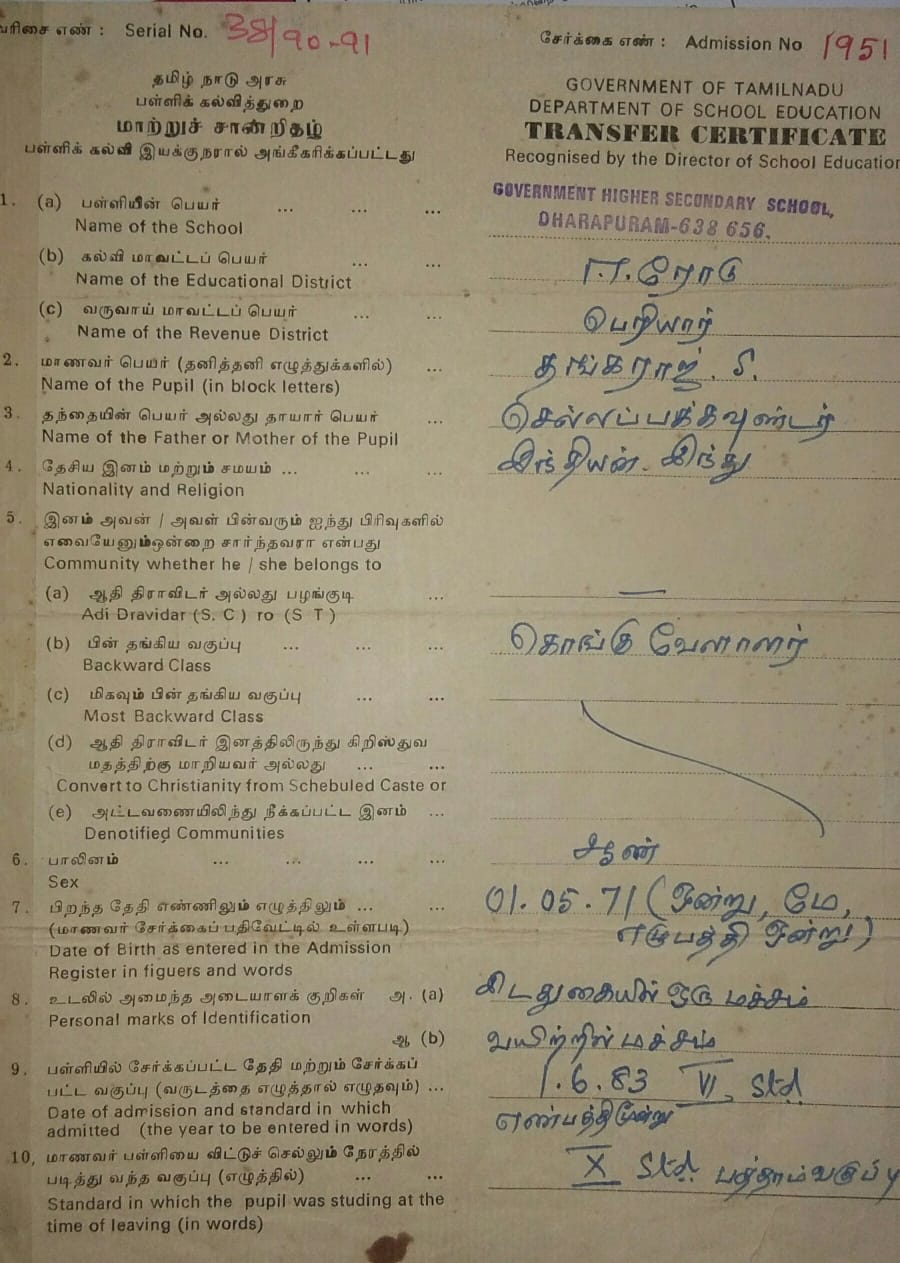 வரிசை எண் : Serial No. 38/90-91
சேர்க்கை எண் : Admission No 1951
தமிழ் நாடு அரசு
பள்ளிக் கல்வித்துறை
மாற்றுச் சான்றிதழ்
பள்ளிக் கல்வி இயக்குநரால் அங்கீகரிக்கப்பட்டது
GOVERNMENT OF TAMILNADU
DEPARTMENT OF SCHOOL EDUCATION
TRANSFER CERTIFICATE
Recognised by the Director of School Education
1. (a) பள்ளியின் பெயர் ... ... ...
Name of the School
GOVERNMENT HIGHER SECONDARY SCHOOL,
DHARAPURAM-638 656.
(b) கல்வி மாவட்டப் பெயர் ... ...
Name of the Educational District
ஈரோடு
(c) வருவாய் மாவட்டப் பெயர் ... ...
Name of the Revenue District
பெரியார்
2. மாணவர் பெயர் (தனித்தனி எழுத்துக்களில்) ...
Name of the Pupil (in block letters)
தங்கராஜ். S.
3. தந்தையின் பெயர் அல்லது தாயார் பெயர் ...
Name of the Father or Mother of the Pupil
செல்லப்பக்கவுண்டர்
4. தேசிய இனம் மற்றும் சமயம் ... ... ...
Nationality and Religion
இந்தியன். இந்து
5. இனம் அவன் / அவள் பின்வரும் ஐந்து பிரிவுகளில்
எவையேனும்ஒன்றை சார்ந்தவரா என்பது
Community whether he / she belongs to
(a) ஆதி திராவிடர் அல்லது பழங்குடி ...
Adi Dravidar (S. C ) ro (S T )
—
(b) பின் தங்கிய வகுப்பு ... ... ...
Backward Class
கொங்கு வேளாளர்
(c) மிகவும் பின் தங்கிய வகுப்பு ... ...
Most Backward Class
(d) ஆதி திராவிடர் இனத்திலிருந்து கிறிஸ்துவ
மதத்திற்கு மாறியவர் அல்லது ... ...
Convert to Christianity from Schebuled Caste or
(e) அட்டவணையிலிந்து நீக்கப்பட்ட இனம் ...
Denotified Communities
6. பாலினம் ... ... ... ...
Sex
ஆண்
7. பிறந்த தேதி எண்ணிலும் எழுத்திலும் ... ...
(மாணவர் சேர்க்கைப் பதிவேட்டில் உள்ளபடி)
Date of Birth as entered in the Admission
Register in figuers and words
01.05.71 (ஒன்று, மே,
எழுபத்தி ஒன்று)
8. உடலில் அமைந்த அடையாளக் குறிகள் அ. (a)
Personal marks of Identification
இடதுகையில் ஒரு மச்சம்
ஆ (b)
வயிற்றில் மச்சம்
9. பள்ளியில் சேர்க்கப்பட்ட தேதி மற்றும் சேர்க்கப்
பட்ட வகுப்பு (வருடத்தை எழுத்தால் எழுதவும்) ...
Date of admission and standard in which
admitted (the year to be entered in words)
1.6.83 VI, Std.
எண்பத்திமூன்று
10, மாணவர் பள்ளியை விட்டுச் செல்லும் நேரத்தில்
படித்து வந்த வகுப்பு (எழுத்தில்) ... ...
Standard in which the pupil was studing at the
time of leaving (in words)
X Std. பத்தாம்வகுப்பு